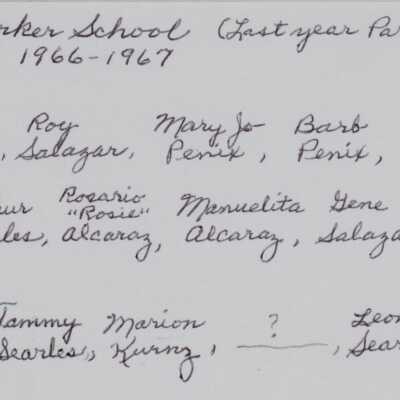 rker School (Last year Pa
1966-1967
Roy Mary Jo Barb
, Salazar, Penix, Penix,
ur Rosario Manuelita Gene
"Rosie"
les, Alcaraz, Alcaraz, Salaza
Tammy Marion ? Leon
Searles, Kurnz, ______, Sear